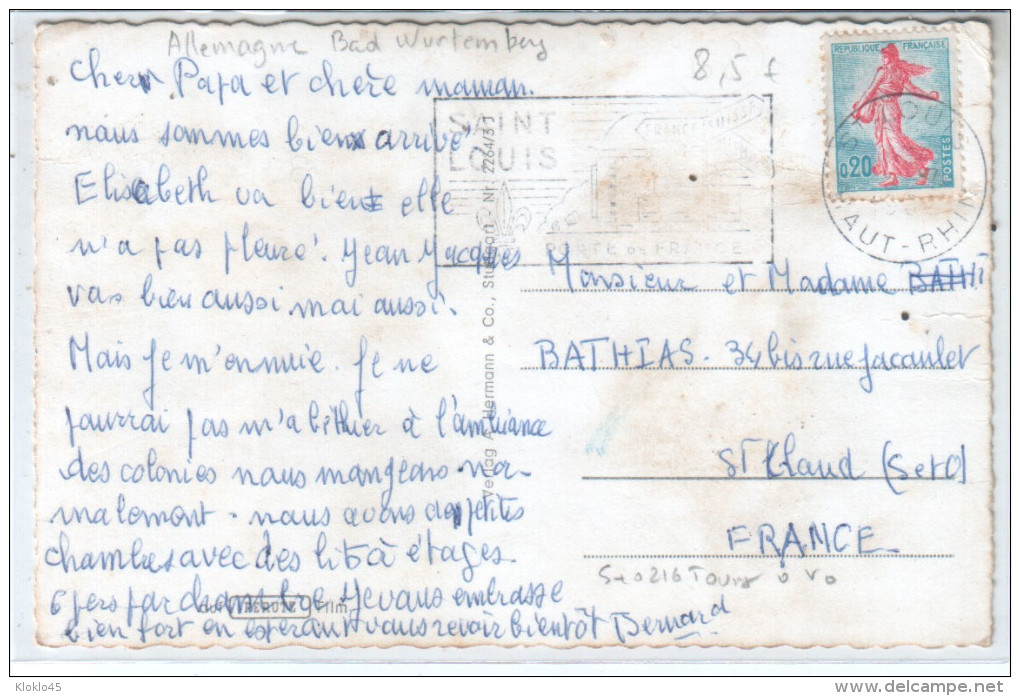 Allemagne Bad Wurtemberg
8,5 €
cher Papa et chère maman.
nous sommes bien arrivé
Elisabeth va bien elle
n'a pas pleuré. Jean Jacques
vas bien aussi moi aussi.
Mais je m'ennuie. Je ne
pourrai pas m'abithuer à l'ambiance
des colonies nous mangeons nor-
malement. nous avons de petites
chambres avec des lits à étages
6 pers par chambre Je vous embrasse
bien fort en esperant vous revoir bientôt Bernard
SAINT
LOUIS
FRANCE SUISSE
PORTE DE FRANCE
REPUBLIQUE FRANÇAISE
0,20
POSTES
HAUT-RHIN
Verlag A. Hermann & Co., Stuttgart Nr. 2264/31
auf PERUTZ Film
Monsieur et Madame BATHI
BATHIAS. 34 bis rue Jacoulet
St Cloud (S et O)
FRANCE
Kloklo45
delcampe.net